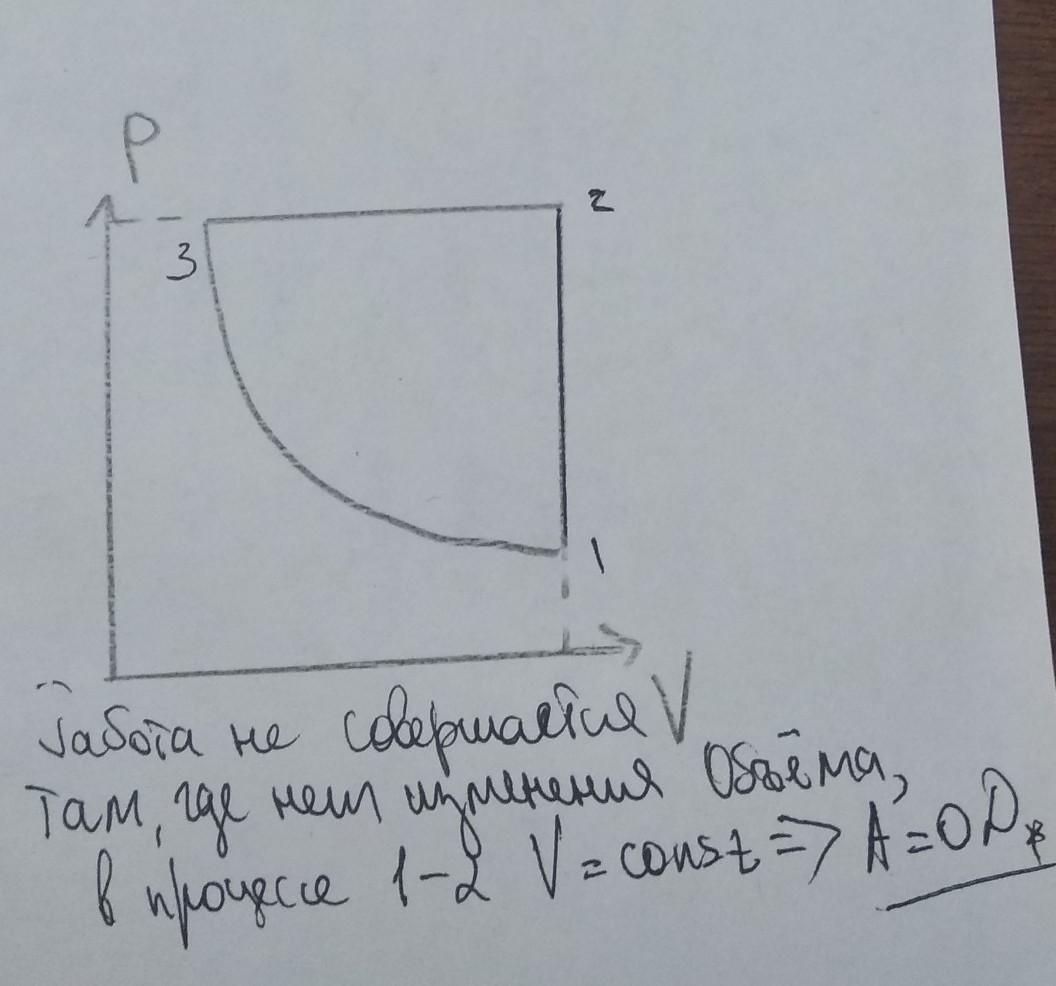 P
3
2
1
V
Работа не совершается
там, где нет изменения объёма,
в процессе 1-2 V = const => A = 0 Дж